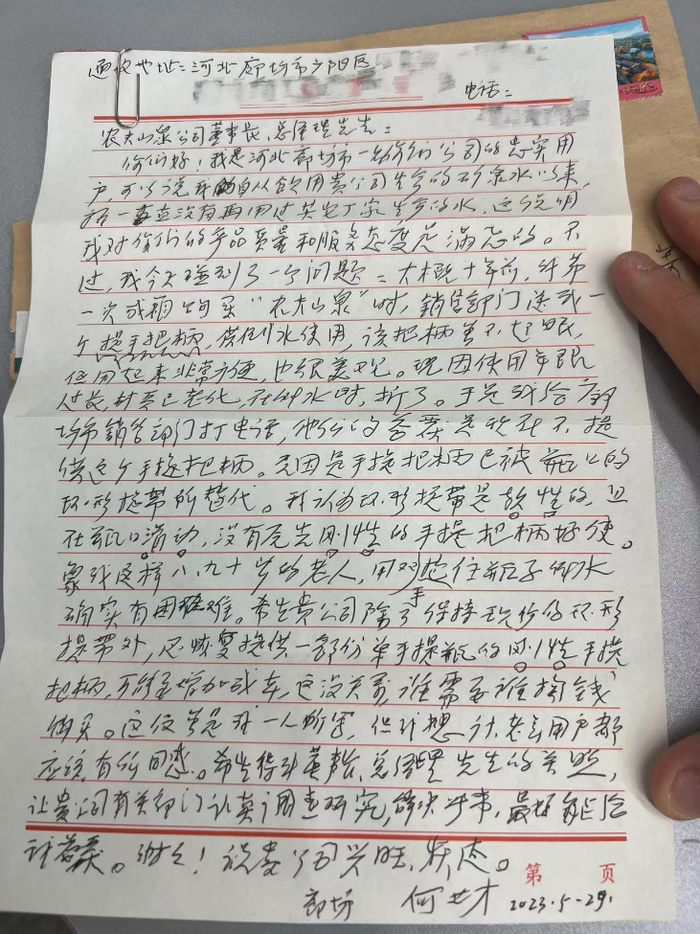 通信地址：河北廊坊市广阳区
电话：
农夫山泉公司董事长、总经理先生：
你们好！我是河北廊坊市一名你们公司的忠实用
户，可以说我自从饮用贵公司生产的矿泉水以来，
一直没有再用过其它厂家生产的水，这说明
我对你们的产品质量和服务态度是满意的。不
过，我今天碰到了一个问题：大概十年前，我第
一次成箱购买“农夫山泉”时，销售部门送我一
个提手把柄，供倒水使用，该把柄看不起眼，
但用起来非常方便，也很美观。现因使用年限
过长，材质已老化，在倒水时，折了。于是我给廊
坊市销售部门打电话，他们的答案是现在不提
供这个手提把柄。原因是手提把柄已被瓶口的
环形提带所替代。我认为环形提带是软性的，且
在瓶口滑动，没有原先刚性的手提把柄好使。
象我这样八、九十岁的老人，用双手抱住瓶子倒水
确实有困难。希望贵公司除了保持现份的环形
提带外，还恢复提供一部份单手提瓶的刚性手提
把柄，可能要增加成本，这没关系，谁需要谁掏钱
购买。这仅管是我一人所写，但我想，许老年用户都
应该有所同感。希望得到董事长、总经理先生的关照，
让贵公司有关部门认真调查研究，解决，最好能给
我答复。谢谢！祝贵公司兴旺、发达。
第 页
廊坊 何世才 2023.5.29.